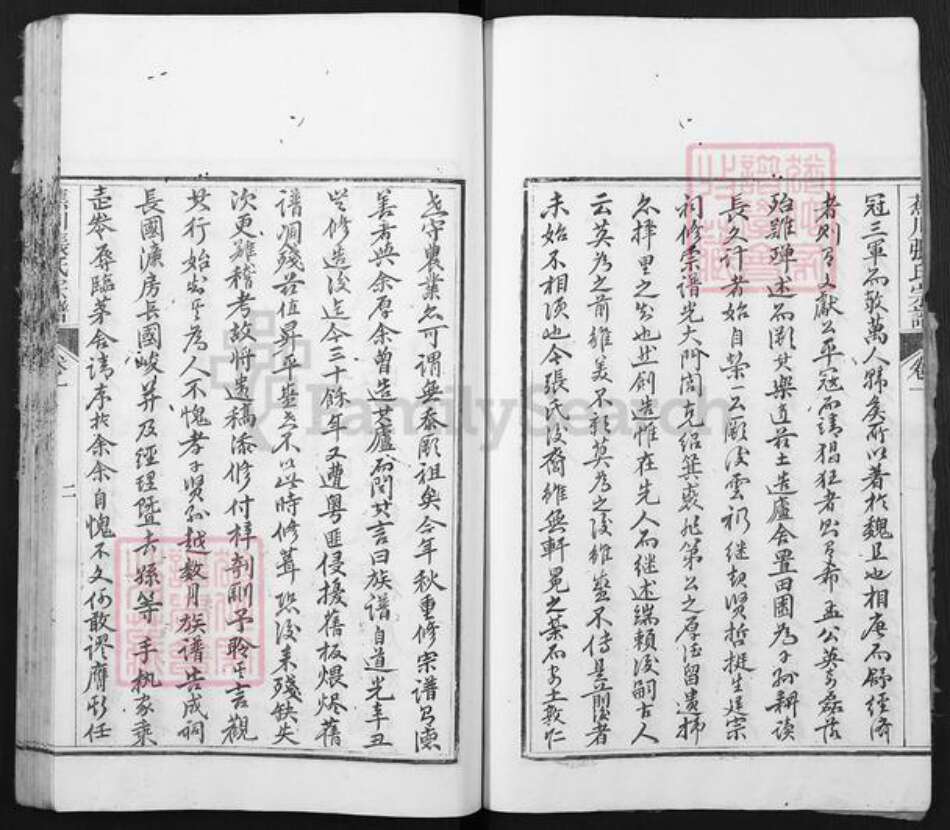 冠三軍而敵萬人歸矣所以著於魏且也相唐而歸經濟
者則有文獻公平冠而靖猖狂者則有希孟公英多磊落
殆難殫述而厥其樂道茲土造廬舍置田園為子孫耕讀
長久計者始自榮一公厥後雲礽繼起賢哲挺生建宗
祠修宗譜光大門閭克紹箕裘
公之厚德留遺抑
之也然創造惟在先人而繼述端賴後嗣古人
云莫為之前雖美不彰莫為之後雖盛不傳是前後者
未始不相須也今張氏後裔雖無軒冕之榮而安土敦仁
世守農業亦可謂無忝厥祖矣今年秋重修宗譜有德
善者與余厚余曾造其廬而問其言曰族譜自道光辛丑
歲修造後迄今三十餘年又遭粵匪侵擾舊板煨燼舊
譜凋殘茲值昇平若不以此時修葺恐後來殘缺失
次更難稽考故將遺稿添修付梓剞劂予聆其言觀
其行始知其為人不愧孝子賢孫越數月族譜告成祠
長國濂房長國峻并及經理暨去孫等手執家乘
走祭辱臨茅舍請序於余余自愧不文何敢謬膺斯任
蕉川張氏宗譜
卷一
二
FamilySearch